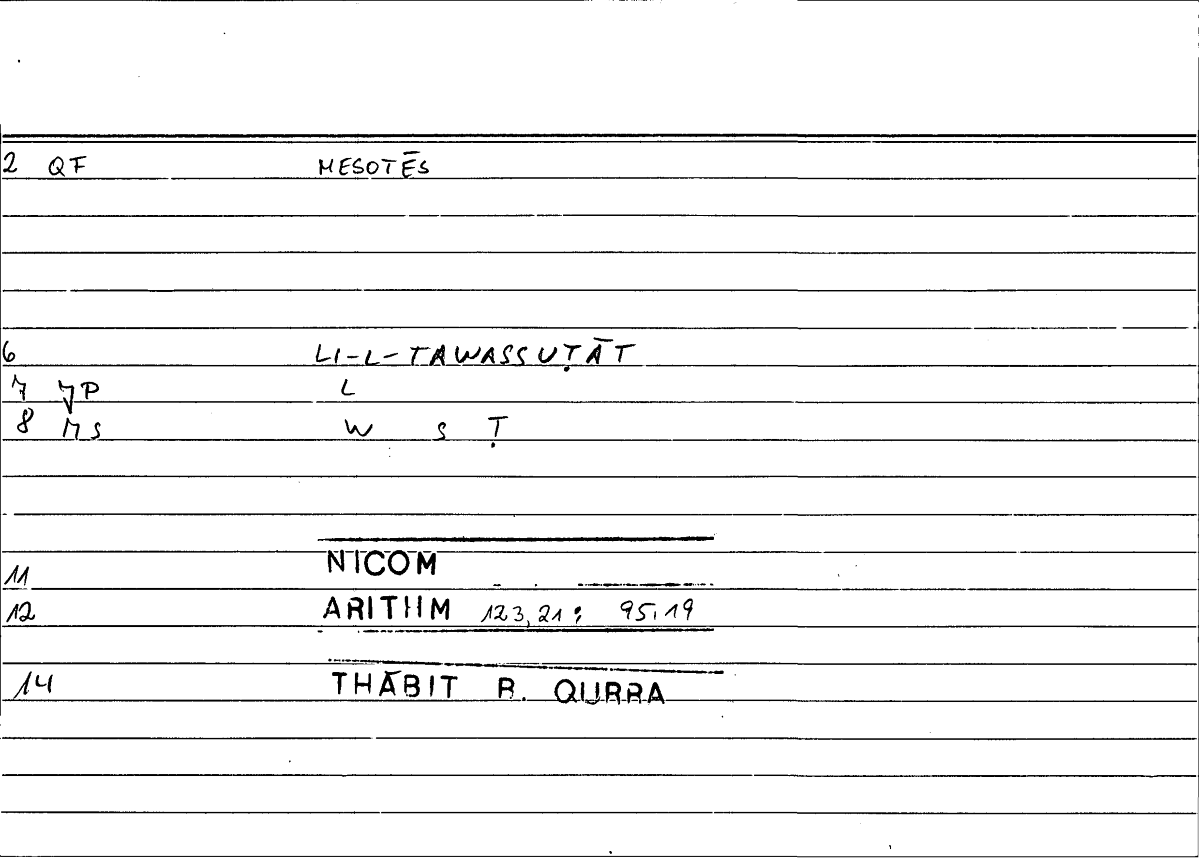 2 QF MESOTĒS
6 LI-L-TAWASSUṬĀT
7 JP L
8 MS W S Ṭ
11 NICOM
12 ARITHM 123,21; 95,19
14 THĀBIT B. QURRA